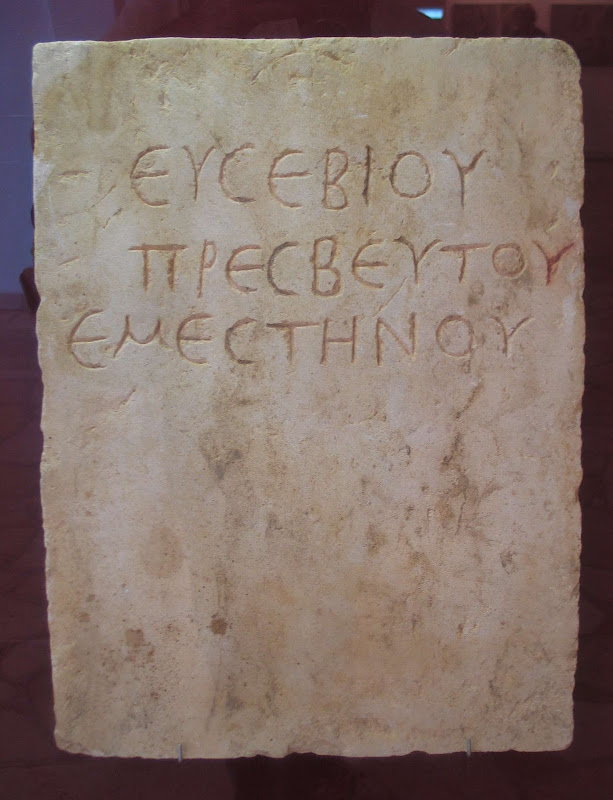 ΕΥϹΕΒΙΟΥ
ΠΡΕϹΒΕΥΤΟΥ
ΕΜΕϹΤΗΝΟΥ